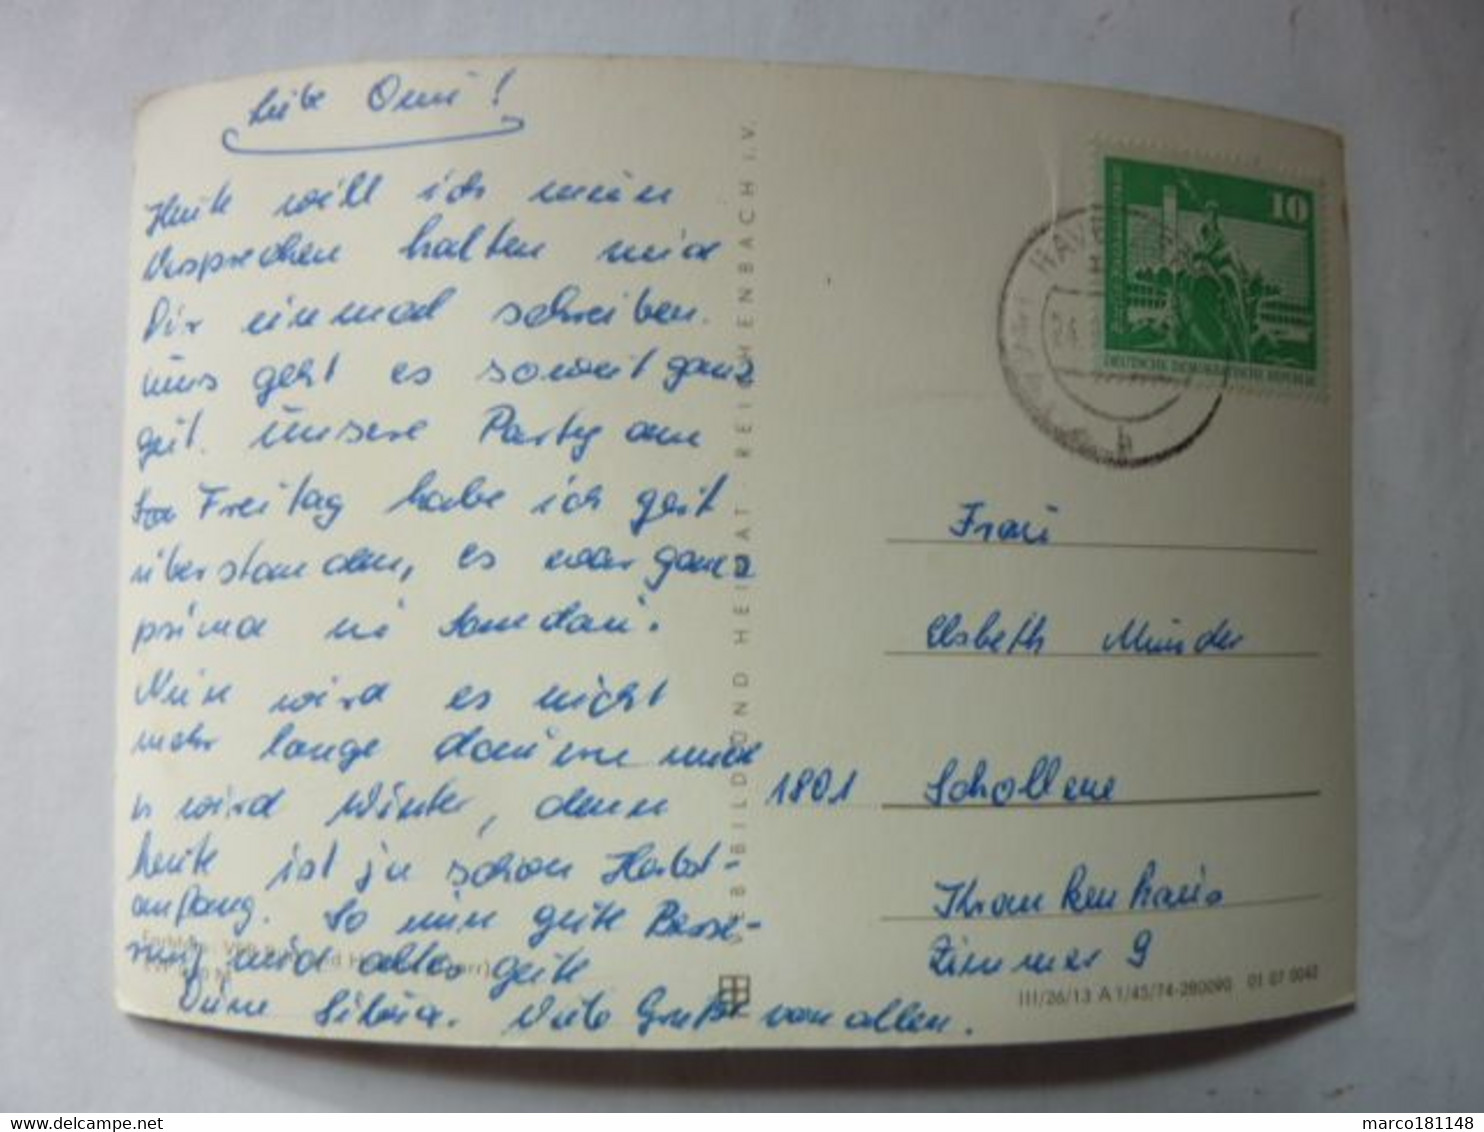 Liebe Omi!
Heute will ich mein
Versprechen halten und
Dir einmal schreiben.
Uns geht es soweit ganz
gut. Unsere Party am
Freitag habe ich gut
überstanden, es war ganz
prima in
Nun wird es nicht
mehr lange dauern und
es wird Winter, denn
heute ist ja schon Herbst-
anfang. So nun gute Besse-
rung und alles gute
Deine Silvia. Viele Grüße von allen.
VEB BILD UND HEIMAT · REICHENBACH I. V.
10
DEUTSCHE DEMOKRATISCHE REPUBLIK
b
Frau
Elsbeth Münder
1801 Schollene
Krankenhaus
Zimmer 9
III/26/13 A 1/45/74-280090 01 07 0042